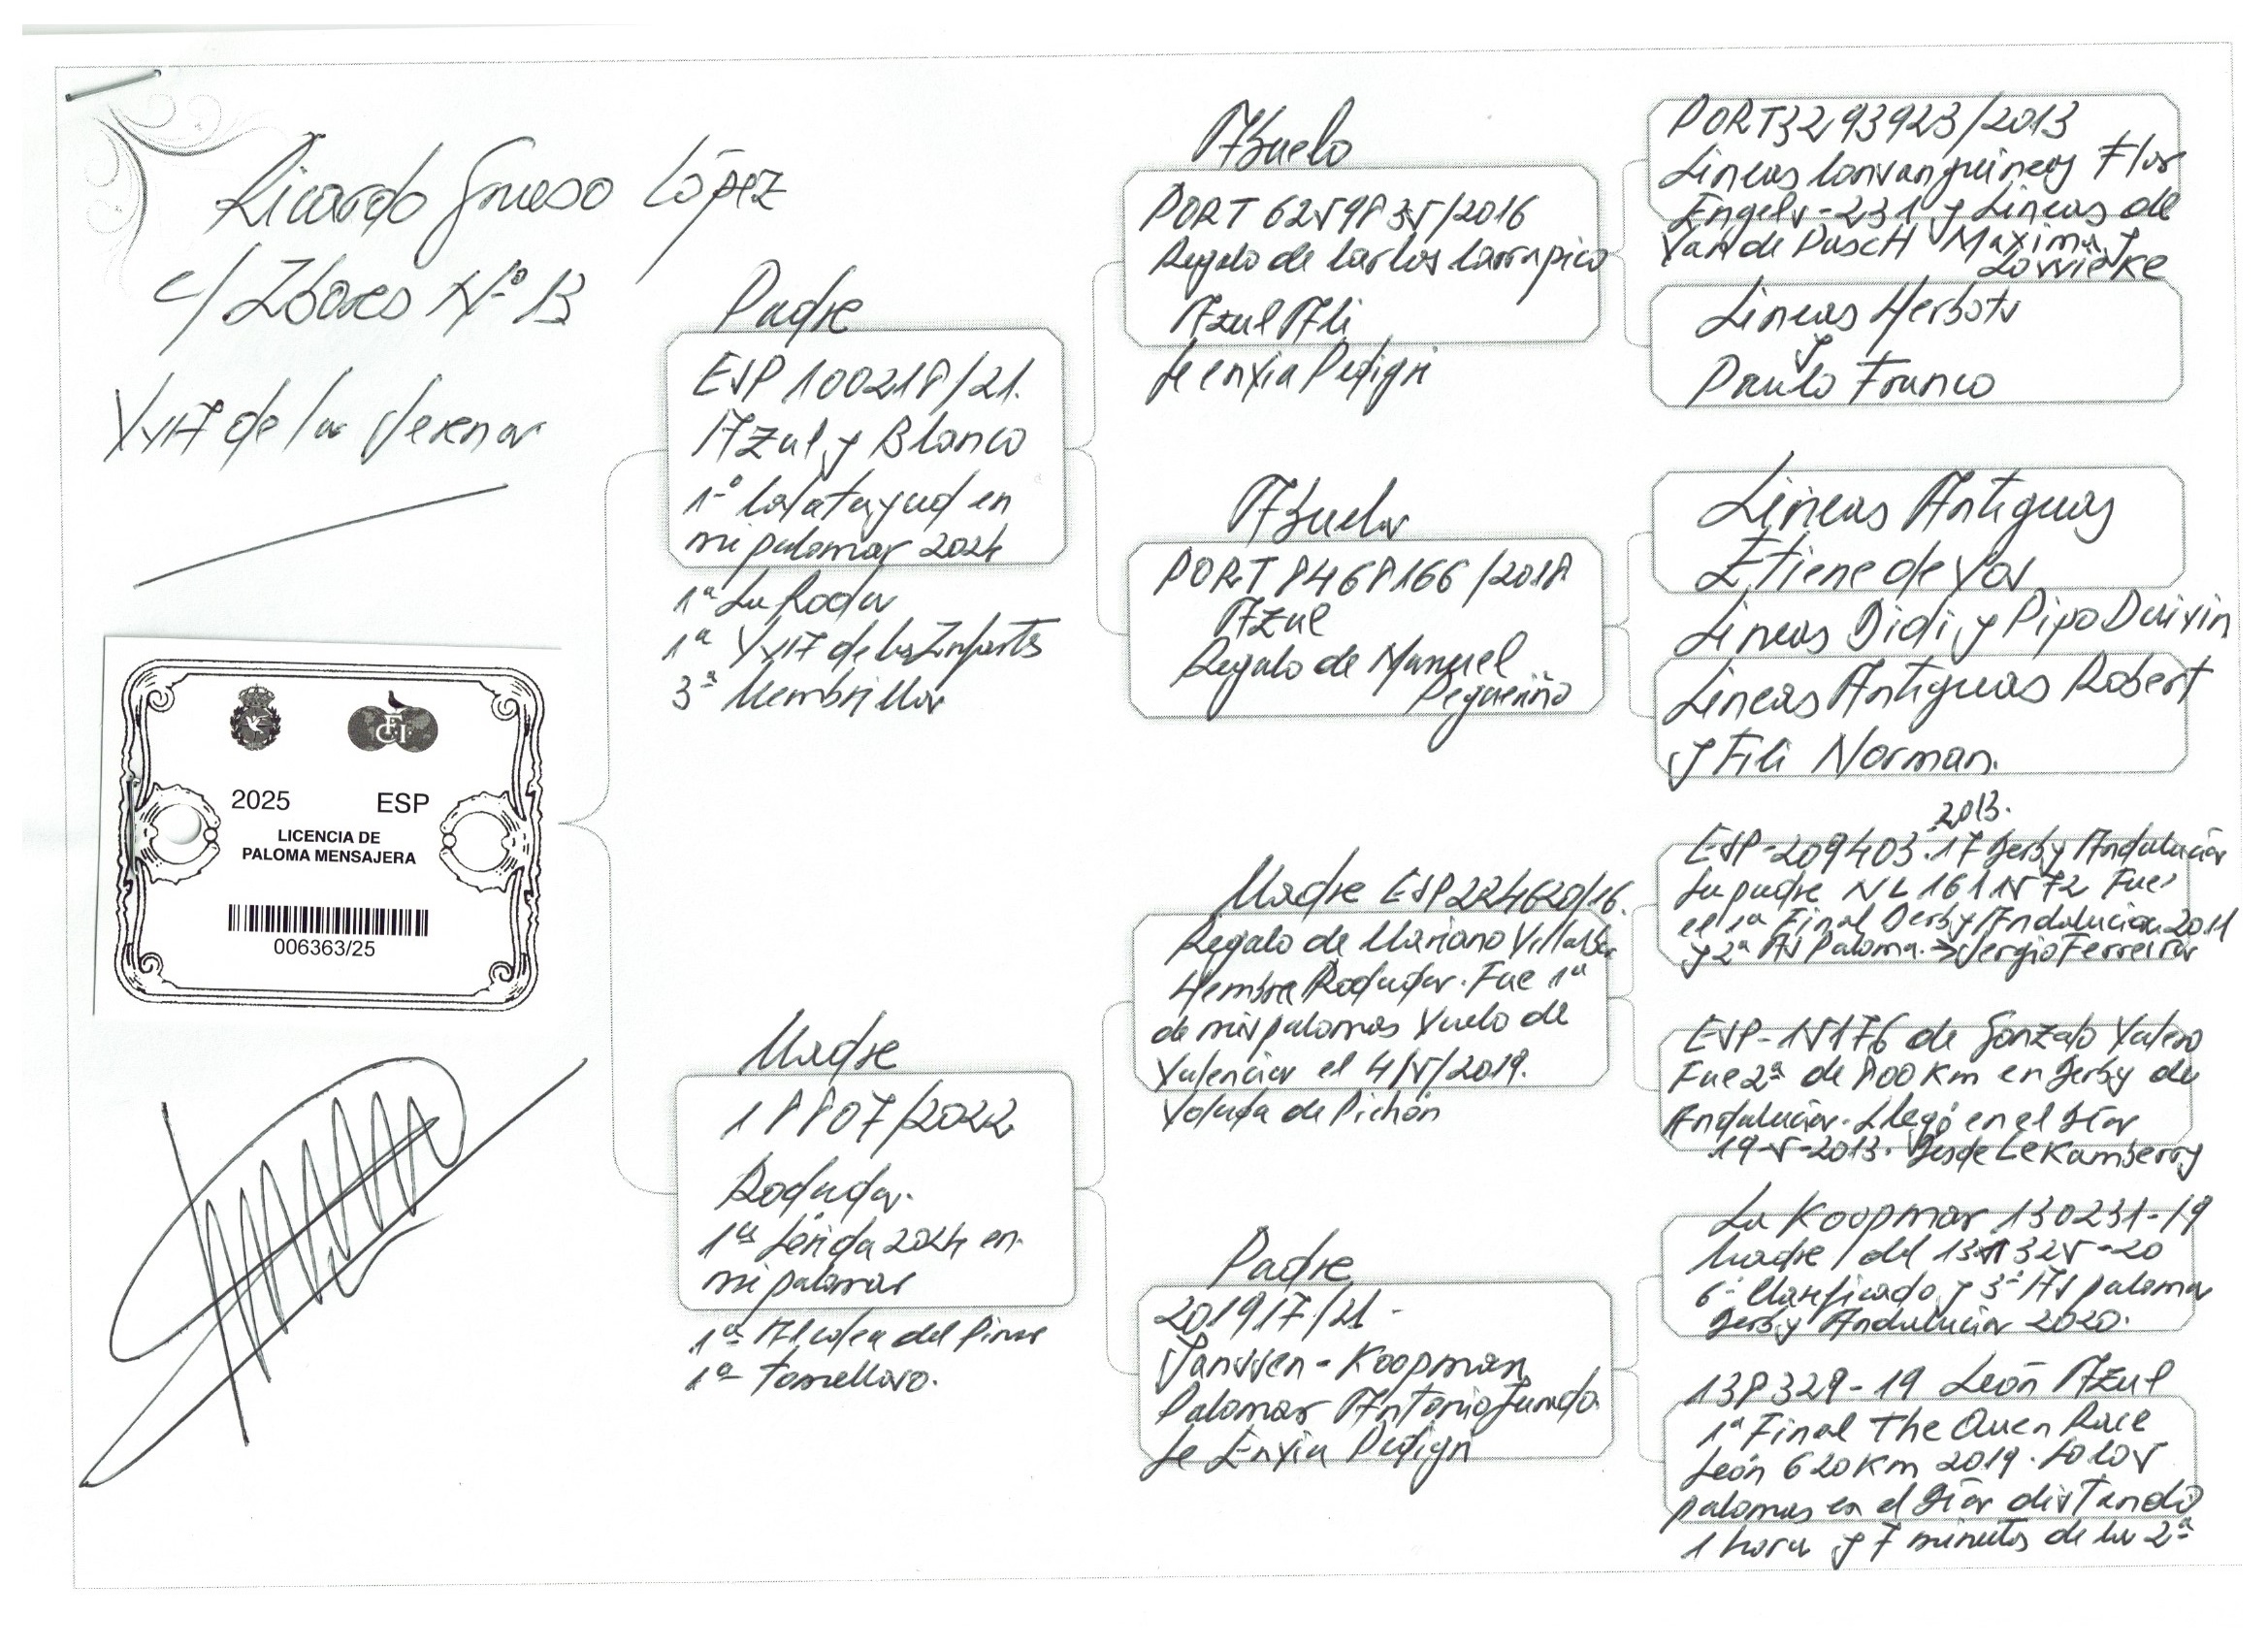 Ricardo Grueso López
c/ Ibores Nº 13
Vva de la Serena
2025 ESP
LICENCIA DE
PALOMA MENSAJERA
006363/25
Padre
ESP 100218/21.
Azul y Blanco
1º Calatayud en
mi palomar 2024
1ª La Roda
1ª Vva de los Infantes
3ª Membrilla
Madre
18807/2022
Rodada.
1ª Lérida 2024 en
mi palomar
1ª Alcolea del Pinar
1ª Tomelloso.
Abuelo
PORT 6259835/2016
Regalo de Carlos Carrapico
Azul Ali
Se envia Pedigri
Abuela
PORT 8468166/2018
Azul
Regalo de Manuel
Pequeniño
Madre ESP224620/16.
Regalo de Mariano Villalba
Hembra Rodada. Fue 1ª
de mis palomas Vuelo de
Valencia el 4/5/2019.
Volada de Pichón
Padre
201917/21-
Janssen-Koopman
Palomar Antonio Jurado
Se Envia Pedigri
PORT3293923/2013
Lineas Consanguineas Flor
Engels-231 y Lineas de
Van de Pasch Maxima y
Lineas Herbots
y
Paulo Franco
Lineas Antiguas
Etiene de Vos
Lineas Didi y Pipo Duivin
Lineas Antiguas Robert
y Fili Norman.
2013.
ESP-209403.17 Derby Andalucia
Su padre NL 1611572 Fue
el 1ª Final Derby Andalucia 2011
y 2ª AS Paloma.->Sergio Ferreira
ESP-15176 de Gonzalo Valero
Fue 2ª de 800 Km en Derby de
Andalucia. Llegó en el Día
19-5-2013. Desde Le Kamberry
La Koopman 130231-19
Madre del 325-20
6º Clasificado y 3ª AS paloma
Derby Andalucia 2020.
138329-19 León Azul
1ª Final The Quen Race
León 620Km 2019. Solos
palomas en el Día distando
1 hora y 7 minutos de la 2ª